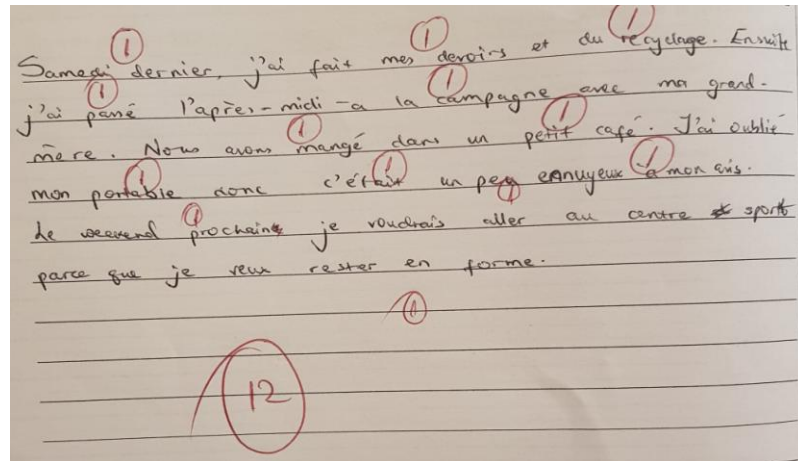 Samedi dernier, j'ai fait mes devoirs et du recyclage. Ensuite
j'ai passé l'après-midi à la campagne avec ma grand-
mère. Nous avons mangé dans un petit café. J'ai oublié
mon portable donc c'était un peu ennuyeux à mon avis.
Le weekend prochain je voudrais aller au centre sport
parce que je veux rester en forme.
1 1 1
1 1
1 1
1 1 1 1
1
1
12